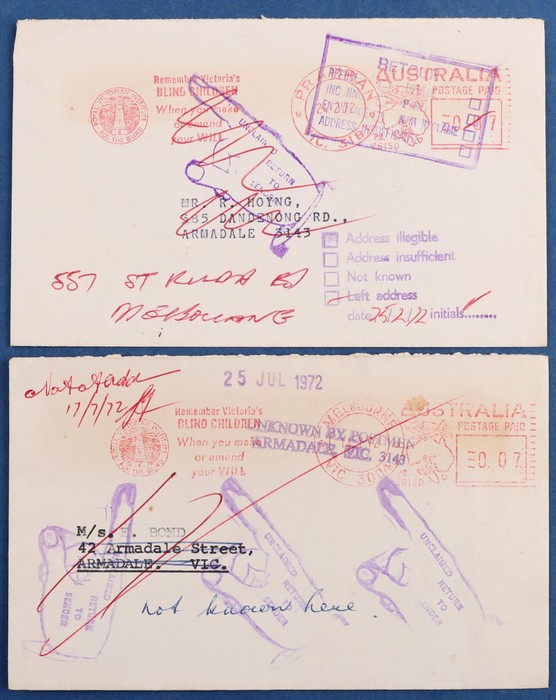 Remember Victoria's
BLIND CHILDREN
When you make
or amend
your WILL
ROYAL VICTORIAN INSTITUTE
FOR THE BLIND
RETOUR
AUSTRALIA
POSTAGE PAID
0.07
PRAHRAN
VIC. 3181
INC
ADDRESS
UNCLAIMED
RETURN
TO
SENDER
MR. R. HOYNG,
535 DANDENONG RD.,
ARMADALE 3143
Address illegible
Address insufficient
Not known
Left address
date 25/2/72 initials
557 ST KILDA RD
MELBOURNE
25 JUL 1972
Not at Adde
17/7/72
Remember Victoria's
BLIND CHILDREN
When you make
or amend
your WILL
UNKNOWN BY POSTMEN
ARMADALE, VIC. 3143
MELBOURNE
VIC 3004
AUSTRALIA
POSTAGE PAID
0.07
M/s. BOND
42 Armadale Street,
ARMADALE. VIC.
UNCLAIMED
RETURN
TO
SENDER
UNCLAIMED
RETURN
TO
SENDER
UNCLAIMED
RETURN
TO
SENDER
not known here.